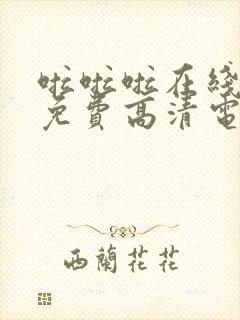 啦啦啦在线
免费高清電
西蘭花花